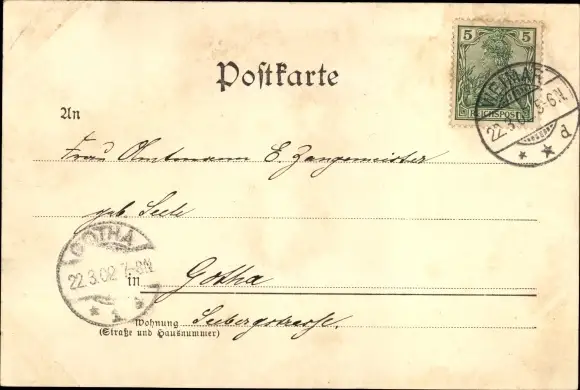 5 5
REICHSPOST
WEIMAR
22.3.02 5-6N
* * d
Postkarte
An
Frau Amtmann E. Zangemeister
geb. Seele
GOTHA
22.3.02 7-8N
* 1 *
in Gotha
Wohnung Seebergstrasse.
(Straße und Hausnummer)